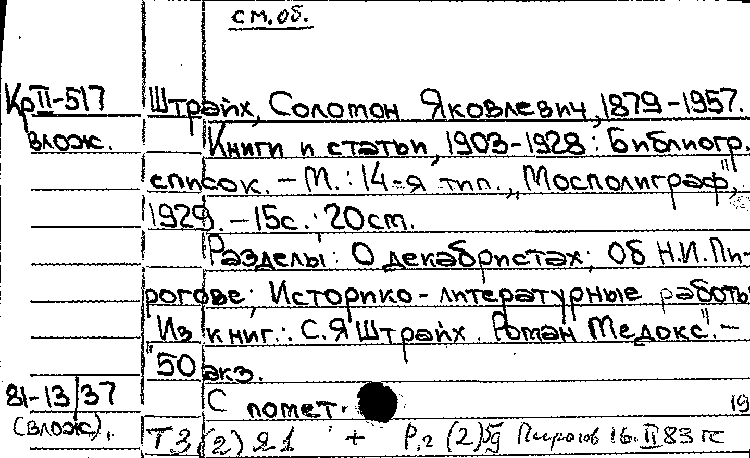 см. об.
Кр II-517
Штрайх, Соломон Яковлевич, 1879-1957.
влож.
Книги и статьи, 1903-1928: Библиогр.
список. - М.: 14-я тип. "Мосполиграф",
1929. - 15с.; 20 см.
Разделы: О декабристах; Об Н.И. Пи-
рогове; Историко-литературные работы
Из книг.: С.Я Штрайх. Роман Медокс". -
"50 экз.
81-13/37
С помет.
19
(влож).
Т3(2)Я1 + Р.г(2)бд Пирогов 16.II 83